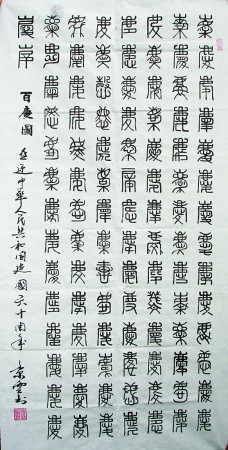 慶慶慶慶慶慶慶慶慶慶慶慶慶慶
慶慶慶慶慶慶慶慶慶慶慶慶慶慶
慶慶慶慶慶慶慶慶慶慶慶慶慶慶
慶慶慶慶慶慶慶慶慶慶慶慶慶慶
慶慶慶慶慶慶慶慶慶慶慶慶慶慶
慶慶慶慶慶慶慶慶慶慶慶慶慶慶
慶慶慶慶慶慶慶慶慶慶慶慶慶慶
慶慶
百慶圖 喜迎中華人民共和国建國六十周年